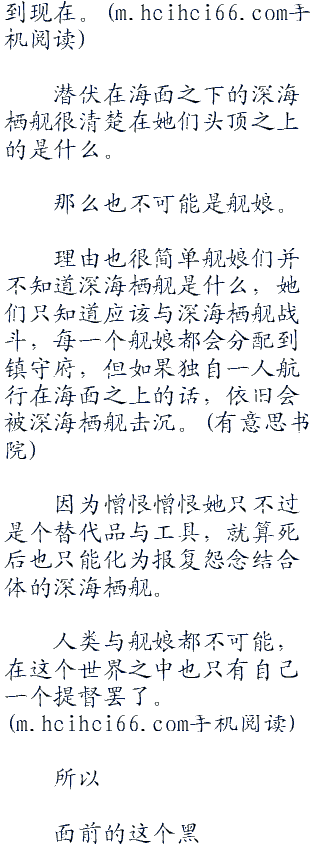 到现在。(m.hcihci66.com手
机阅读)
潜伏在海面之下的深海
栖舰很清楚在她们头顶之上
的是什么。
那么也不可能是舰娘。
理由也很简单舰娘们并
不知道深海栖舰是什么，她
们只知道应该与深海栖舰战
斗，每一个舰娘都会分配到
镇守府，但如果独自一人航
行在海面之上的话，依旧会
被深海栖舰击沉。(有意思书
院)
因为憎恨憎恨她只不过
是个替代品与工具，就算死
后也只能化为报复怨念结合
体的深海栖舰。
人类与舰娘都不可能，
在这个世界之中也只有自己
一个提督罢了。
(m.hcihci66.com手机阅读)
所以
面前的这个黑